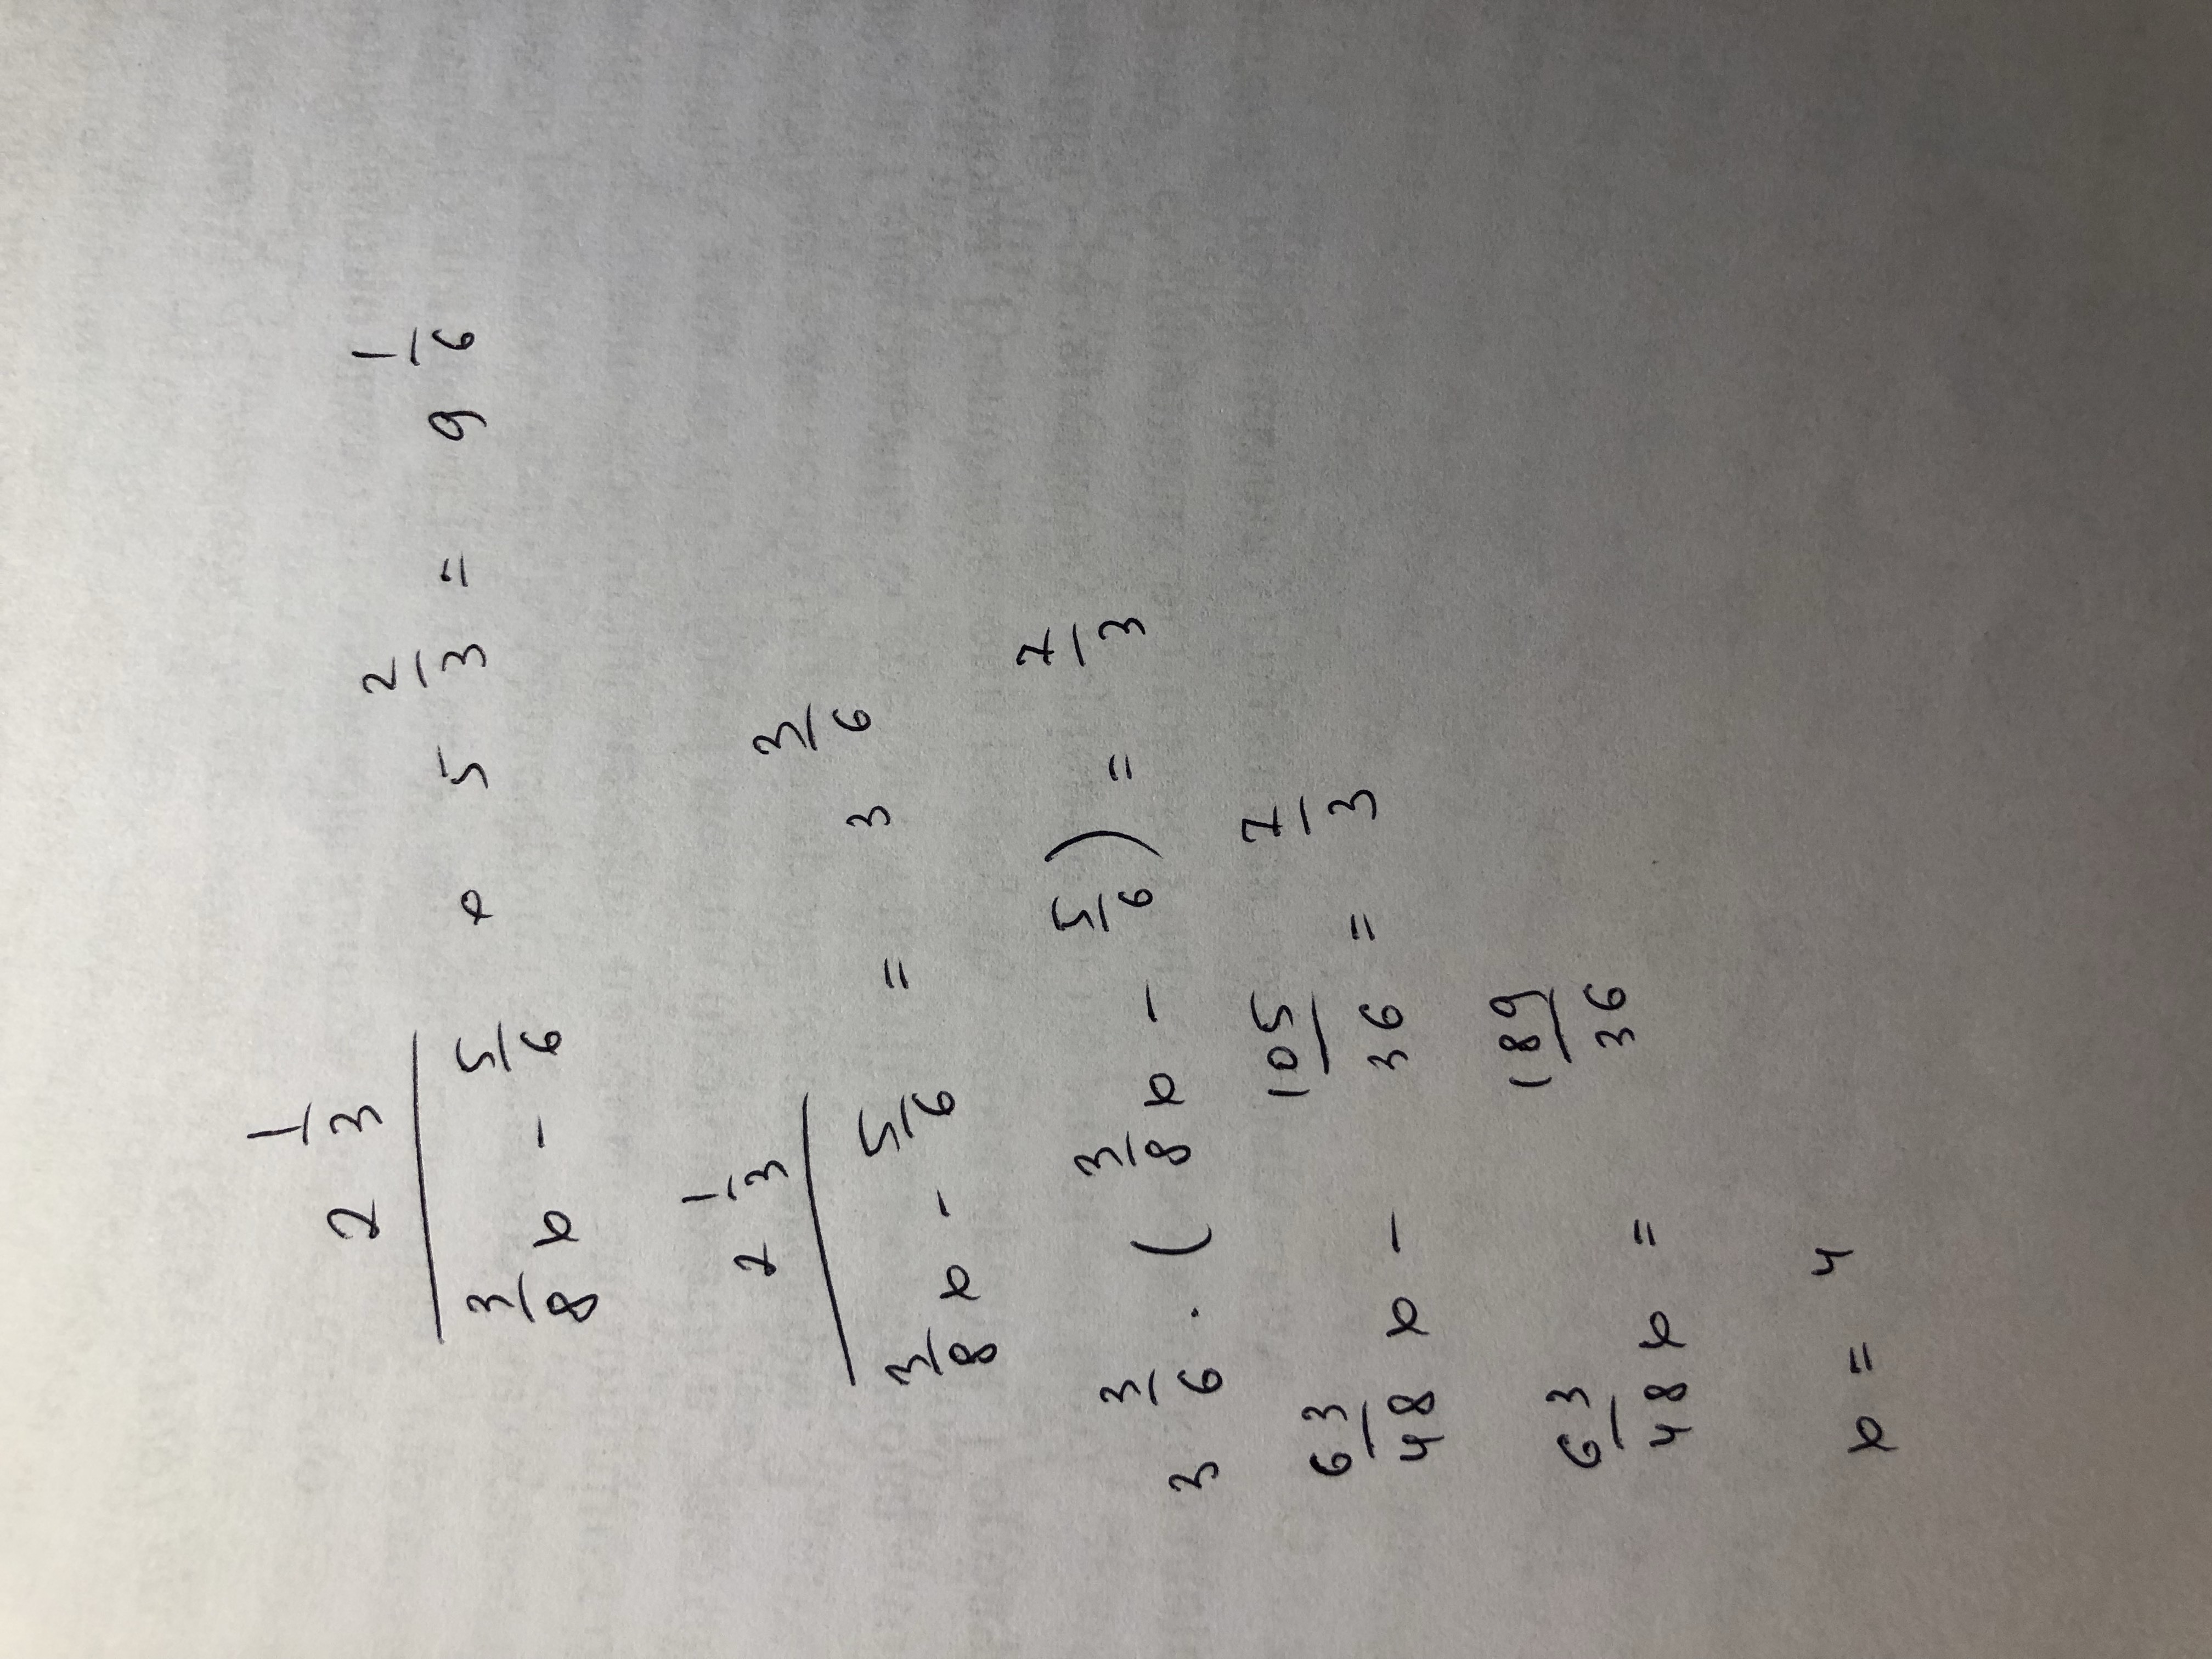 2 1/3 / (3/8 x - 5/6) + 5 2/3 = 9 1/6
2 1/3 / (3/8 x - 5/6) = 3 3/6
3 3/6 · (3/8 x - 5/6) = 7/3
63/48 x - 105/36 = 7/3
63/48 x = 189/36
x = 4